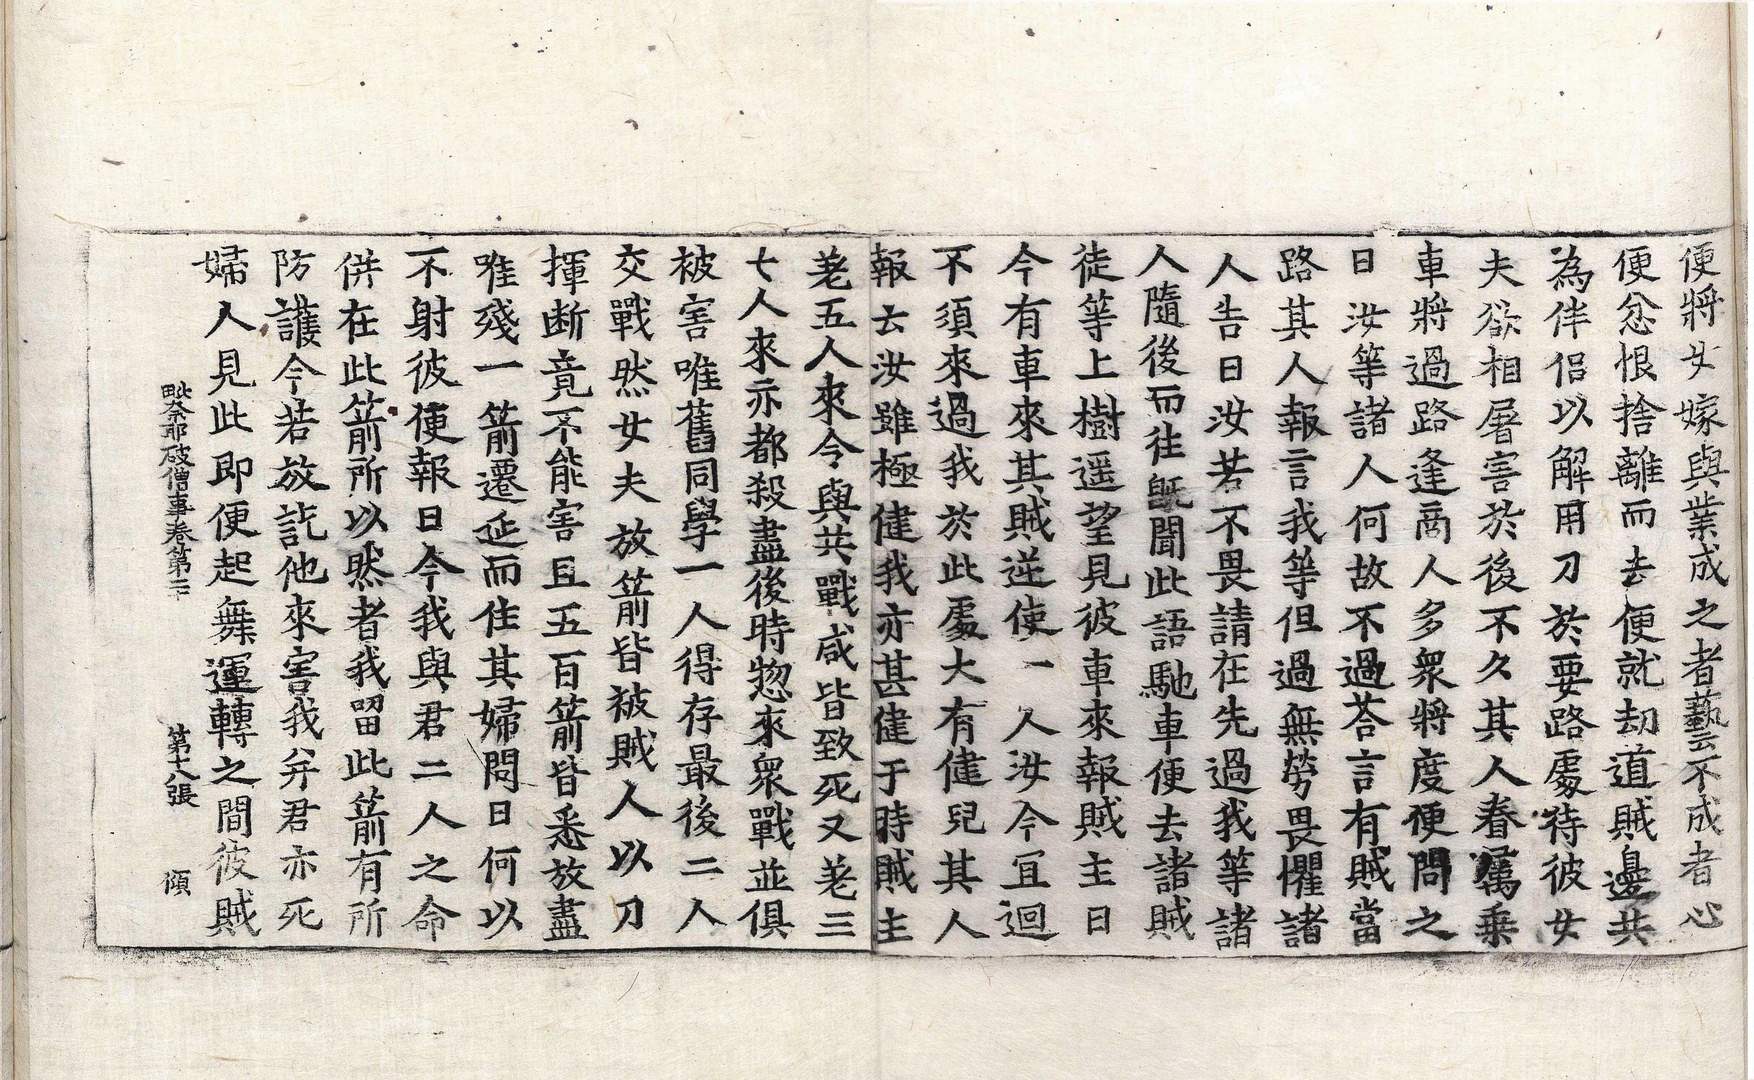 便將女嫁與業成之者藝不成者心
便忿恨捨離而去便就劫道賊邊共
為伴侶以解用刀於要路處待彼女
夫欲相屠害於後不久其人眷屬乗
車將過路逢商人多衆將度便問之
曰汝等諸人何故不過荅言有賊當
路其人報言我等但過無勞畏懼諸
人告曰汝若不畏請在先過我等諸
人隨後而往旣聞此語馳車便去諸賊
徒等上樹遥望見彼車來報賊主曰
今有車來其賊逆使一人汝今冝迴
不須來過我於此處大有健兒其人
報云汝雖極健我亦甚健于時賊主
差五人來令與共戰咸皆致死又差三
七人來亦都殺盡後時惣來衆戰並俱
被害唯舊同學一人得存最後二人
交戰然女夫放箭皆被賊人以刀
揮断竟不能害且五百箭皆悉放盡
唯殘一箭遷延而住其婦問曰何以
不射彼便報曰今我與君二人之命
併在此箭所以然者我留此箭有所
防護今若放訖他來害我并君亦死
婦人見此即便起舞運轉之間彼賊
毗奈耶破僧事卷第三 第十八張 傾